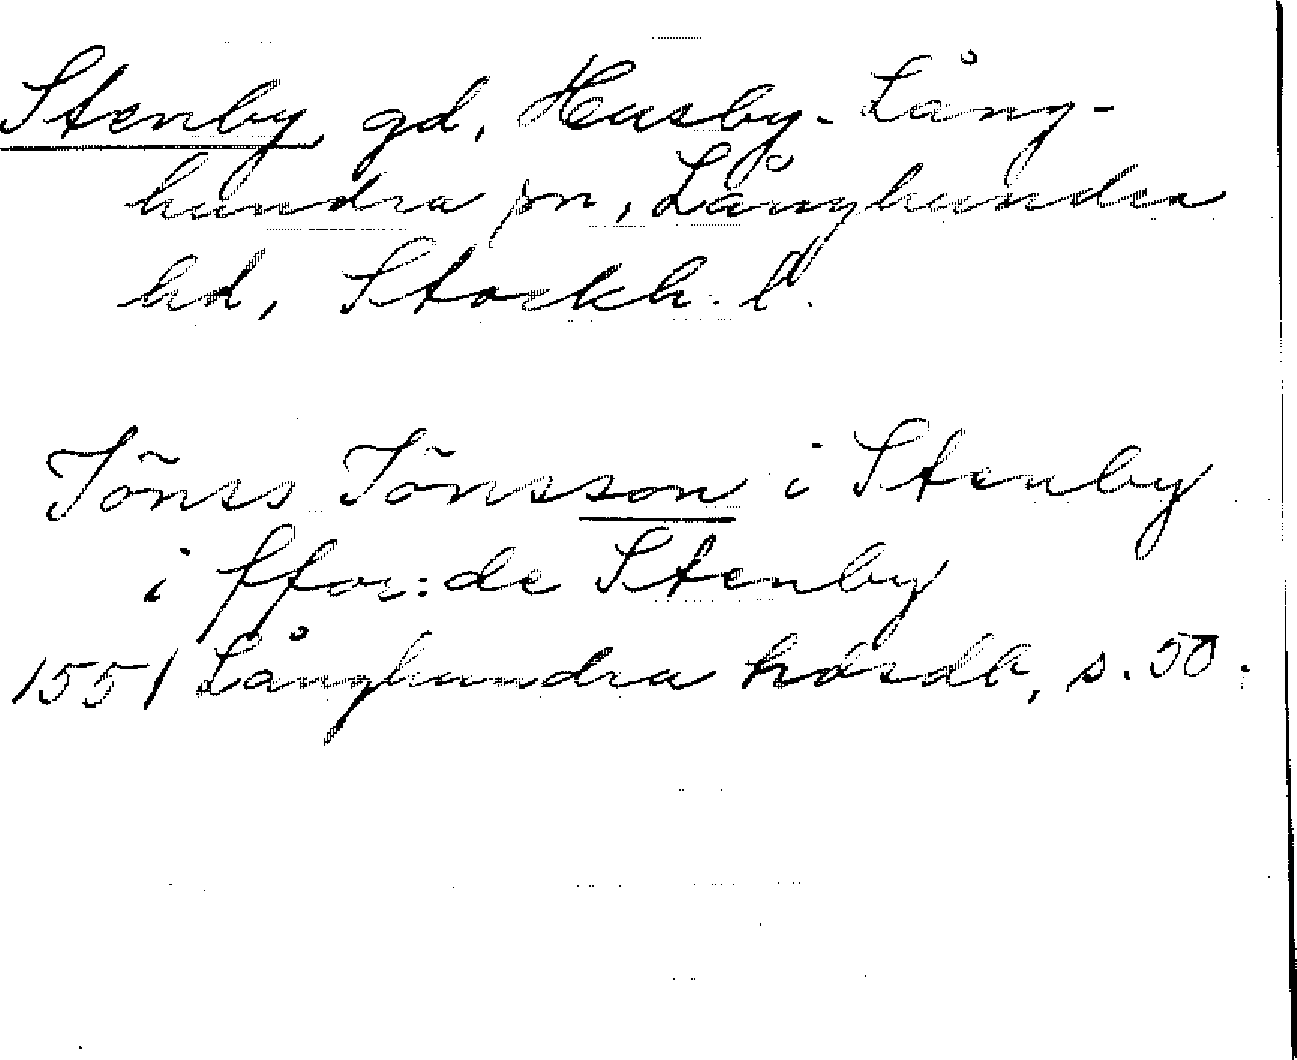 Stenby gd, Husby-Lång-
hundra sn, Långhundra
hd, Stockh. l.
Jönss Jönsson i Stenby
i ffor:de Stenby
1551 Långhundra hdsdb, s. 50.